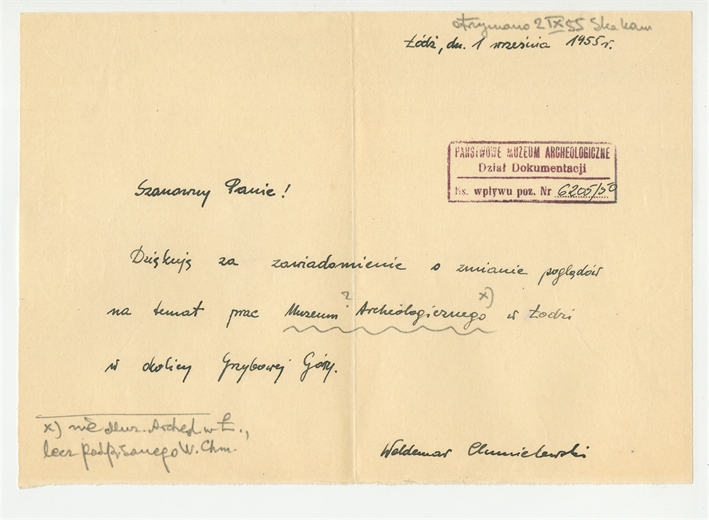 otrzymano 2 IX 55 Skakam
Łódź, dn. 1 września 1955 r.
PAŃSTWOWE MUZEUM ARCHEOLOGICZNE
Dział Dokumentacji
Ks. wpływu poz. Nr 6205/50
Szanowny Panie!
Dziękuję za zawiadomienie o zmianie poglądów
na temat prac Muzeum ? Archeologicznego x) w Łodzi
w okolicy Grzybowej Góry.
x) nie Muz. Archeol. w Ł.,
lecz podpisanego W. Chm.
Waldemar Chmielewski